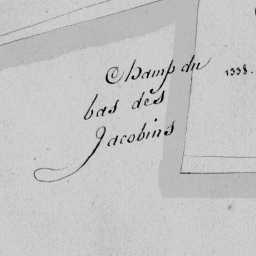 Champ du
bas des
Jacobins
1338.